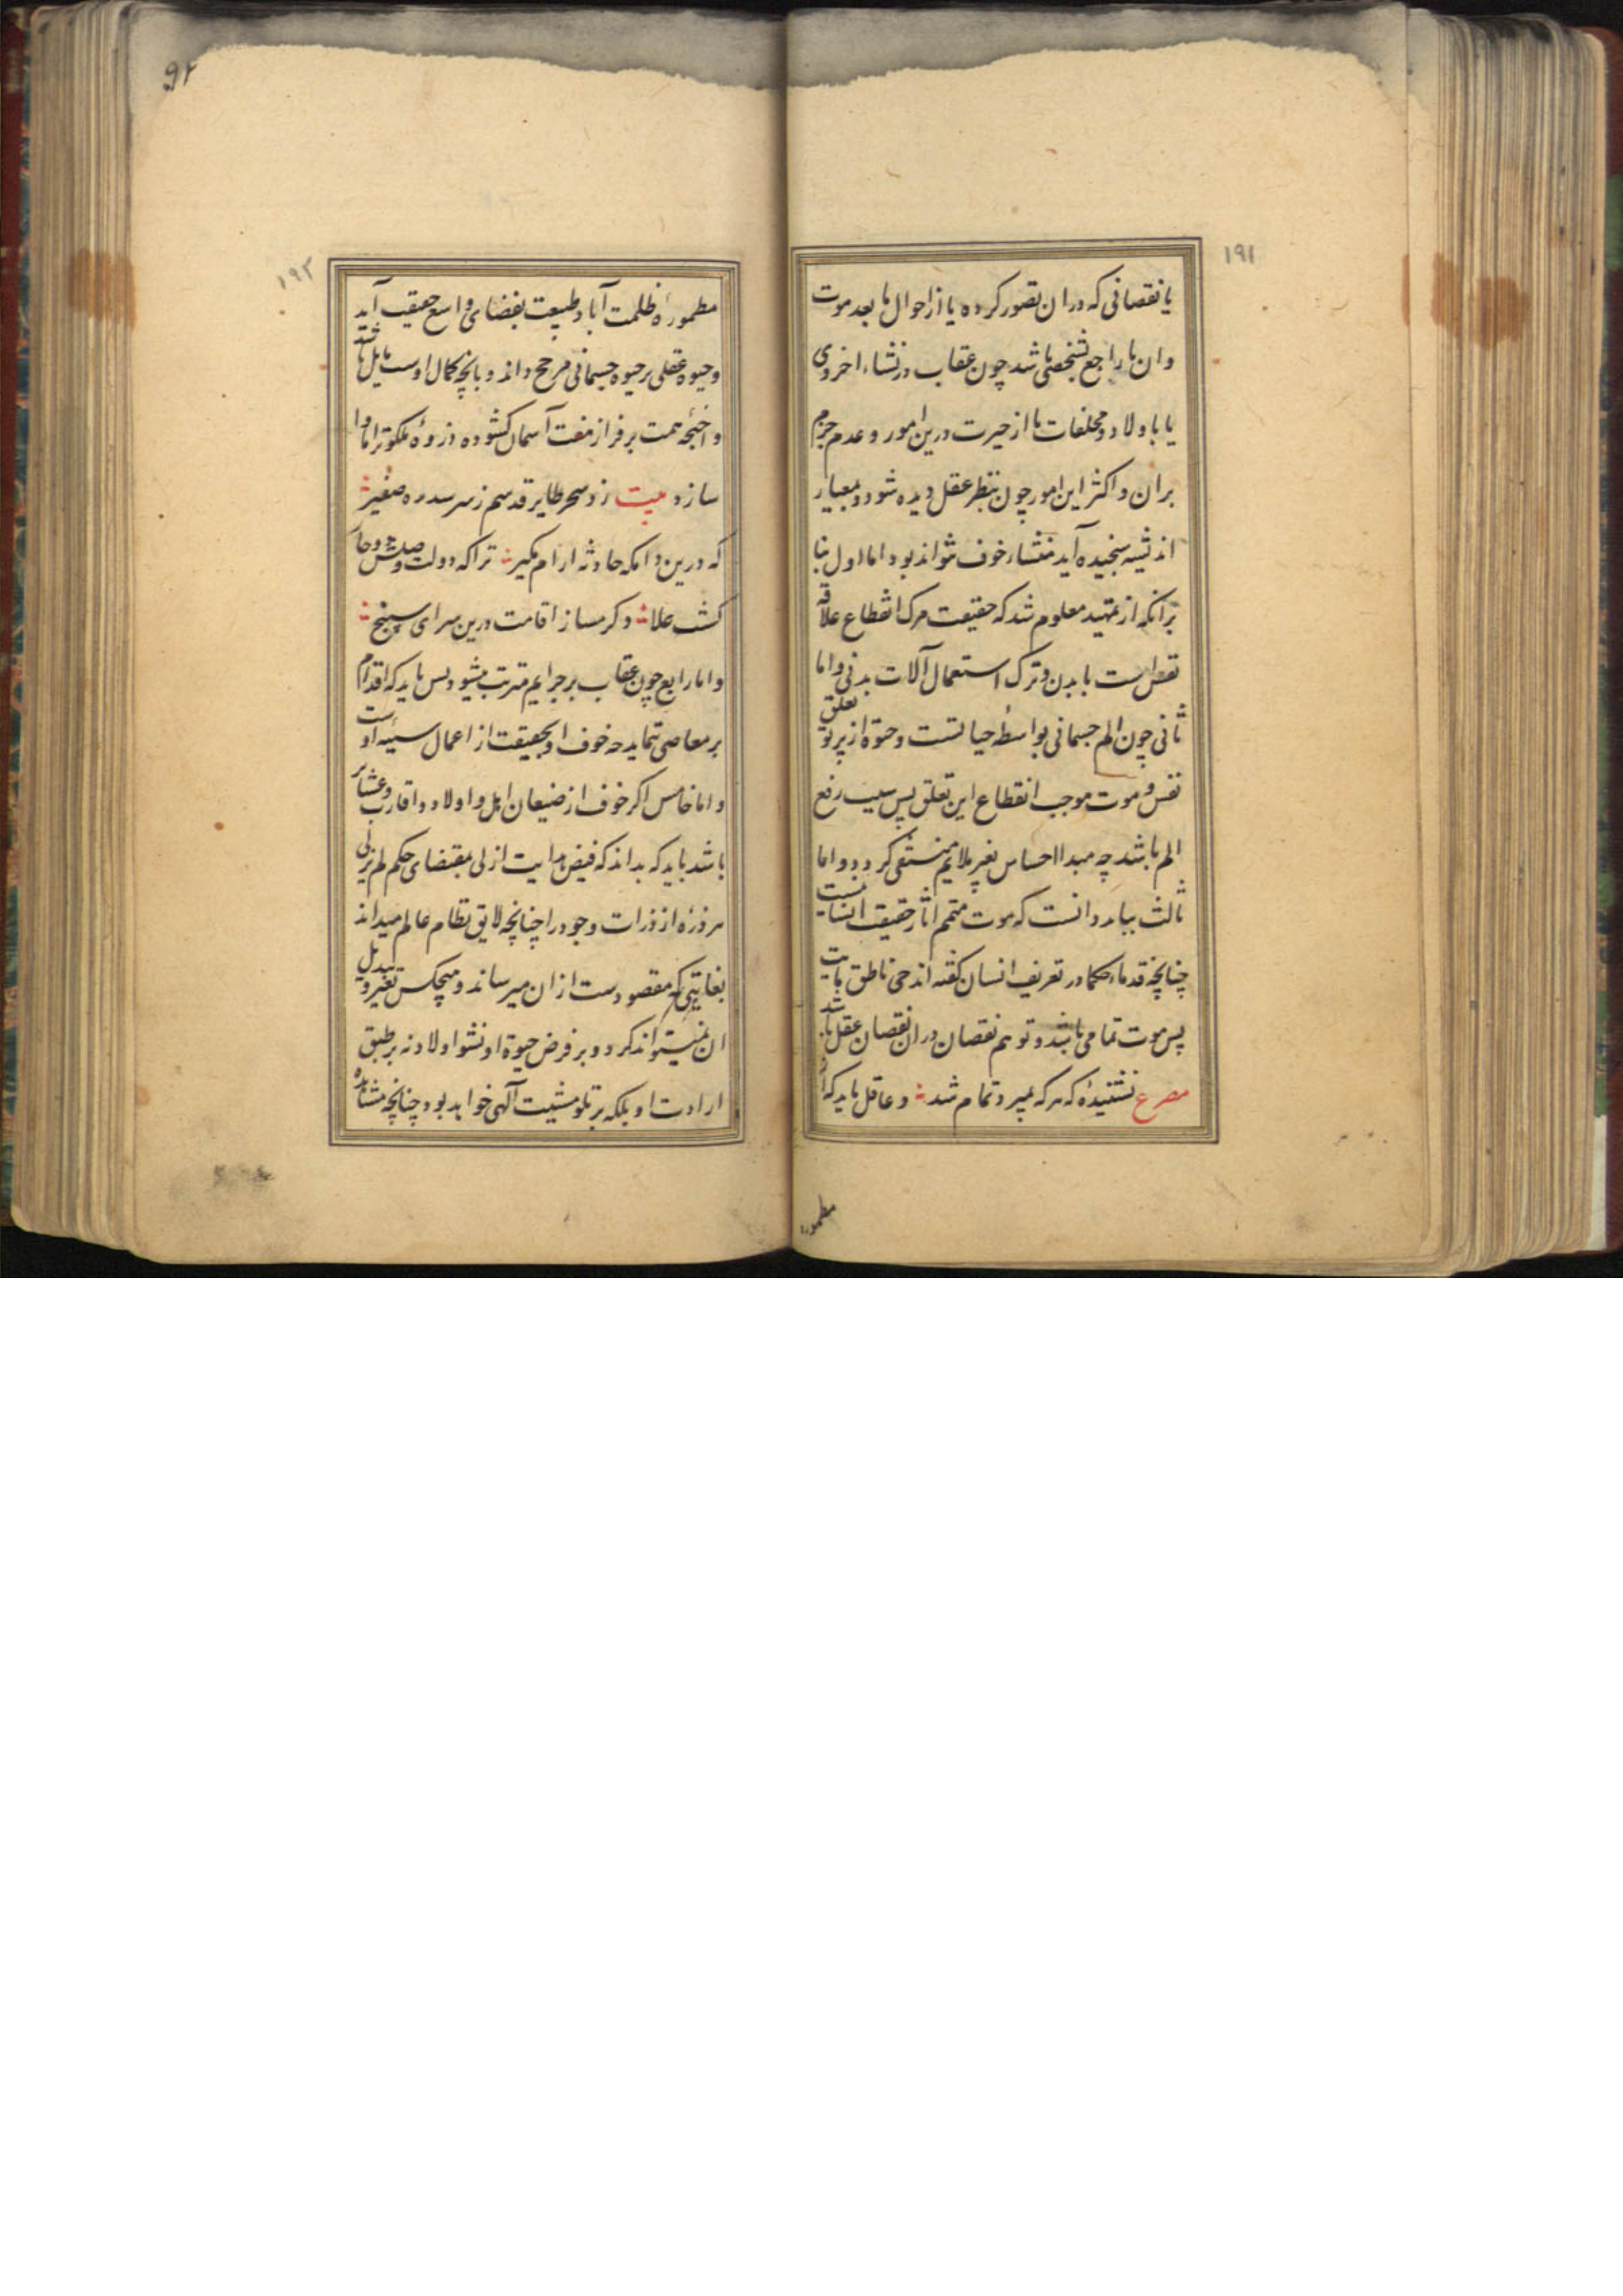 ۱۹۱
یا نقصانی که دران تصور کرده یا از احوال ما بعد موت
و ان یا راجع بشخصی باشد چون عقاب در نشاء اخروی
یا باولاد و مخلفات یا از حیرت درین امور و عدم جزم
بران و اکثر این امور چون بنظر عقل دیده شود و بمعیار
اندیشه سنجیده آید منشاء خوف نتواند بود اما اول بنا
برانکه از تمهید معلوم شد که حقیقت مرک انقطاع علاقه
نفس است با بدن و ترک استعمال آلات بدنی و اما
ثانی چون الم جسمانی بواسطهٔ حیاتست و حیوة از پرتو تعلق
نفس و موت موجب انقطاع این تعلق پس سبب رفع
الم باشد چه مبدا احساس بغیر ملایم منتفی کردد و اما
ثالث بباید دانست که موت متمم اثار حقیقت انسانیست
چنانچه قدماء حکما در تعریف انسان کفته اند حی ناطق مایت
پس موت تمامی باشد و توهم نقصان دران نقصان عقل باشد
مصرع نشنیدهٔ که هر که بمیرد تمام شد و عاقل باید که از
مطموره
۹۲
۱۹۲
مطمورهٔ ظلمت آباد طبیعت بفضای واسع حقیقت آید
و حیوة عقلی بر حیوة جسمانی مرجح داند و بانچه کمال اوست مایل باشد
و اجنحه همت بر فراز هفت آسمان کشوده ذروهٔ ملکوترا ماوا
سازد بیت زد سحر طایر قدسم ز سر سدره صفیر
که درین دامکه حادثه ارام مکیر ترا که دولت وصلش دو جا
کشد علا دکر مساز اقامت درین سرای سپنج
و اما رابع چون عقاب بر جرایم مترتب میشود پس باید که اقدام
بر معاصی ننماید چه خوف او بحقیقت از اعمال سیئه اوست
و اما خامس اکر خوف از ضیعان اهل و اولاد و اقارب و عشایر
باشد باید که بداند که فیض هدایت ازلی بمقتضای حکم لم یزلی
هر ذرهٔ از ذرات وجود را چنانچه لایق نظام عالم میداند
بغایتی که مقصودست ازان میرساند و هیچکس تغییر و تبدیل
ان نمیتواند کرد و بر فرض حیوة او نشو اولاد نه بر طبق
ارادت او بلکه بر تلو مشیت آلهی خواهد بود چنانچه مشاهده